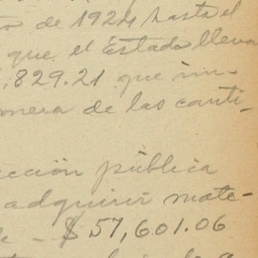 de 1924 hasta el
que el Estado lleva
,829.21 que sin
onera de las canti-
cción pública
adquirir mate-
- $57,601.06